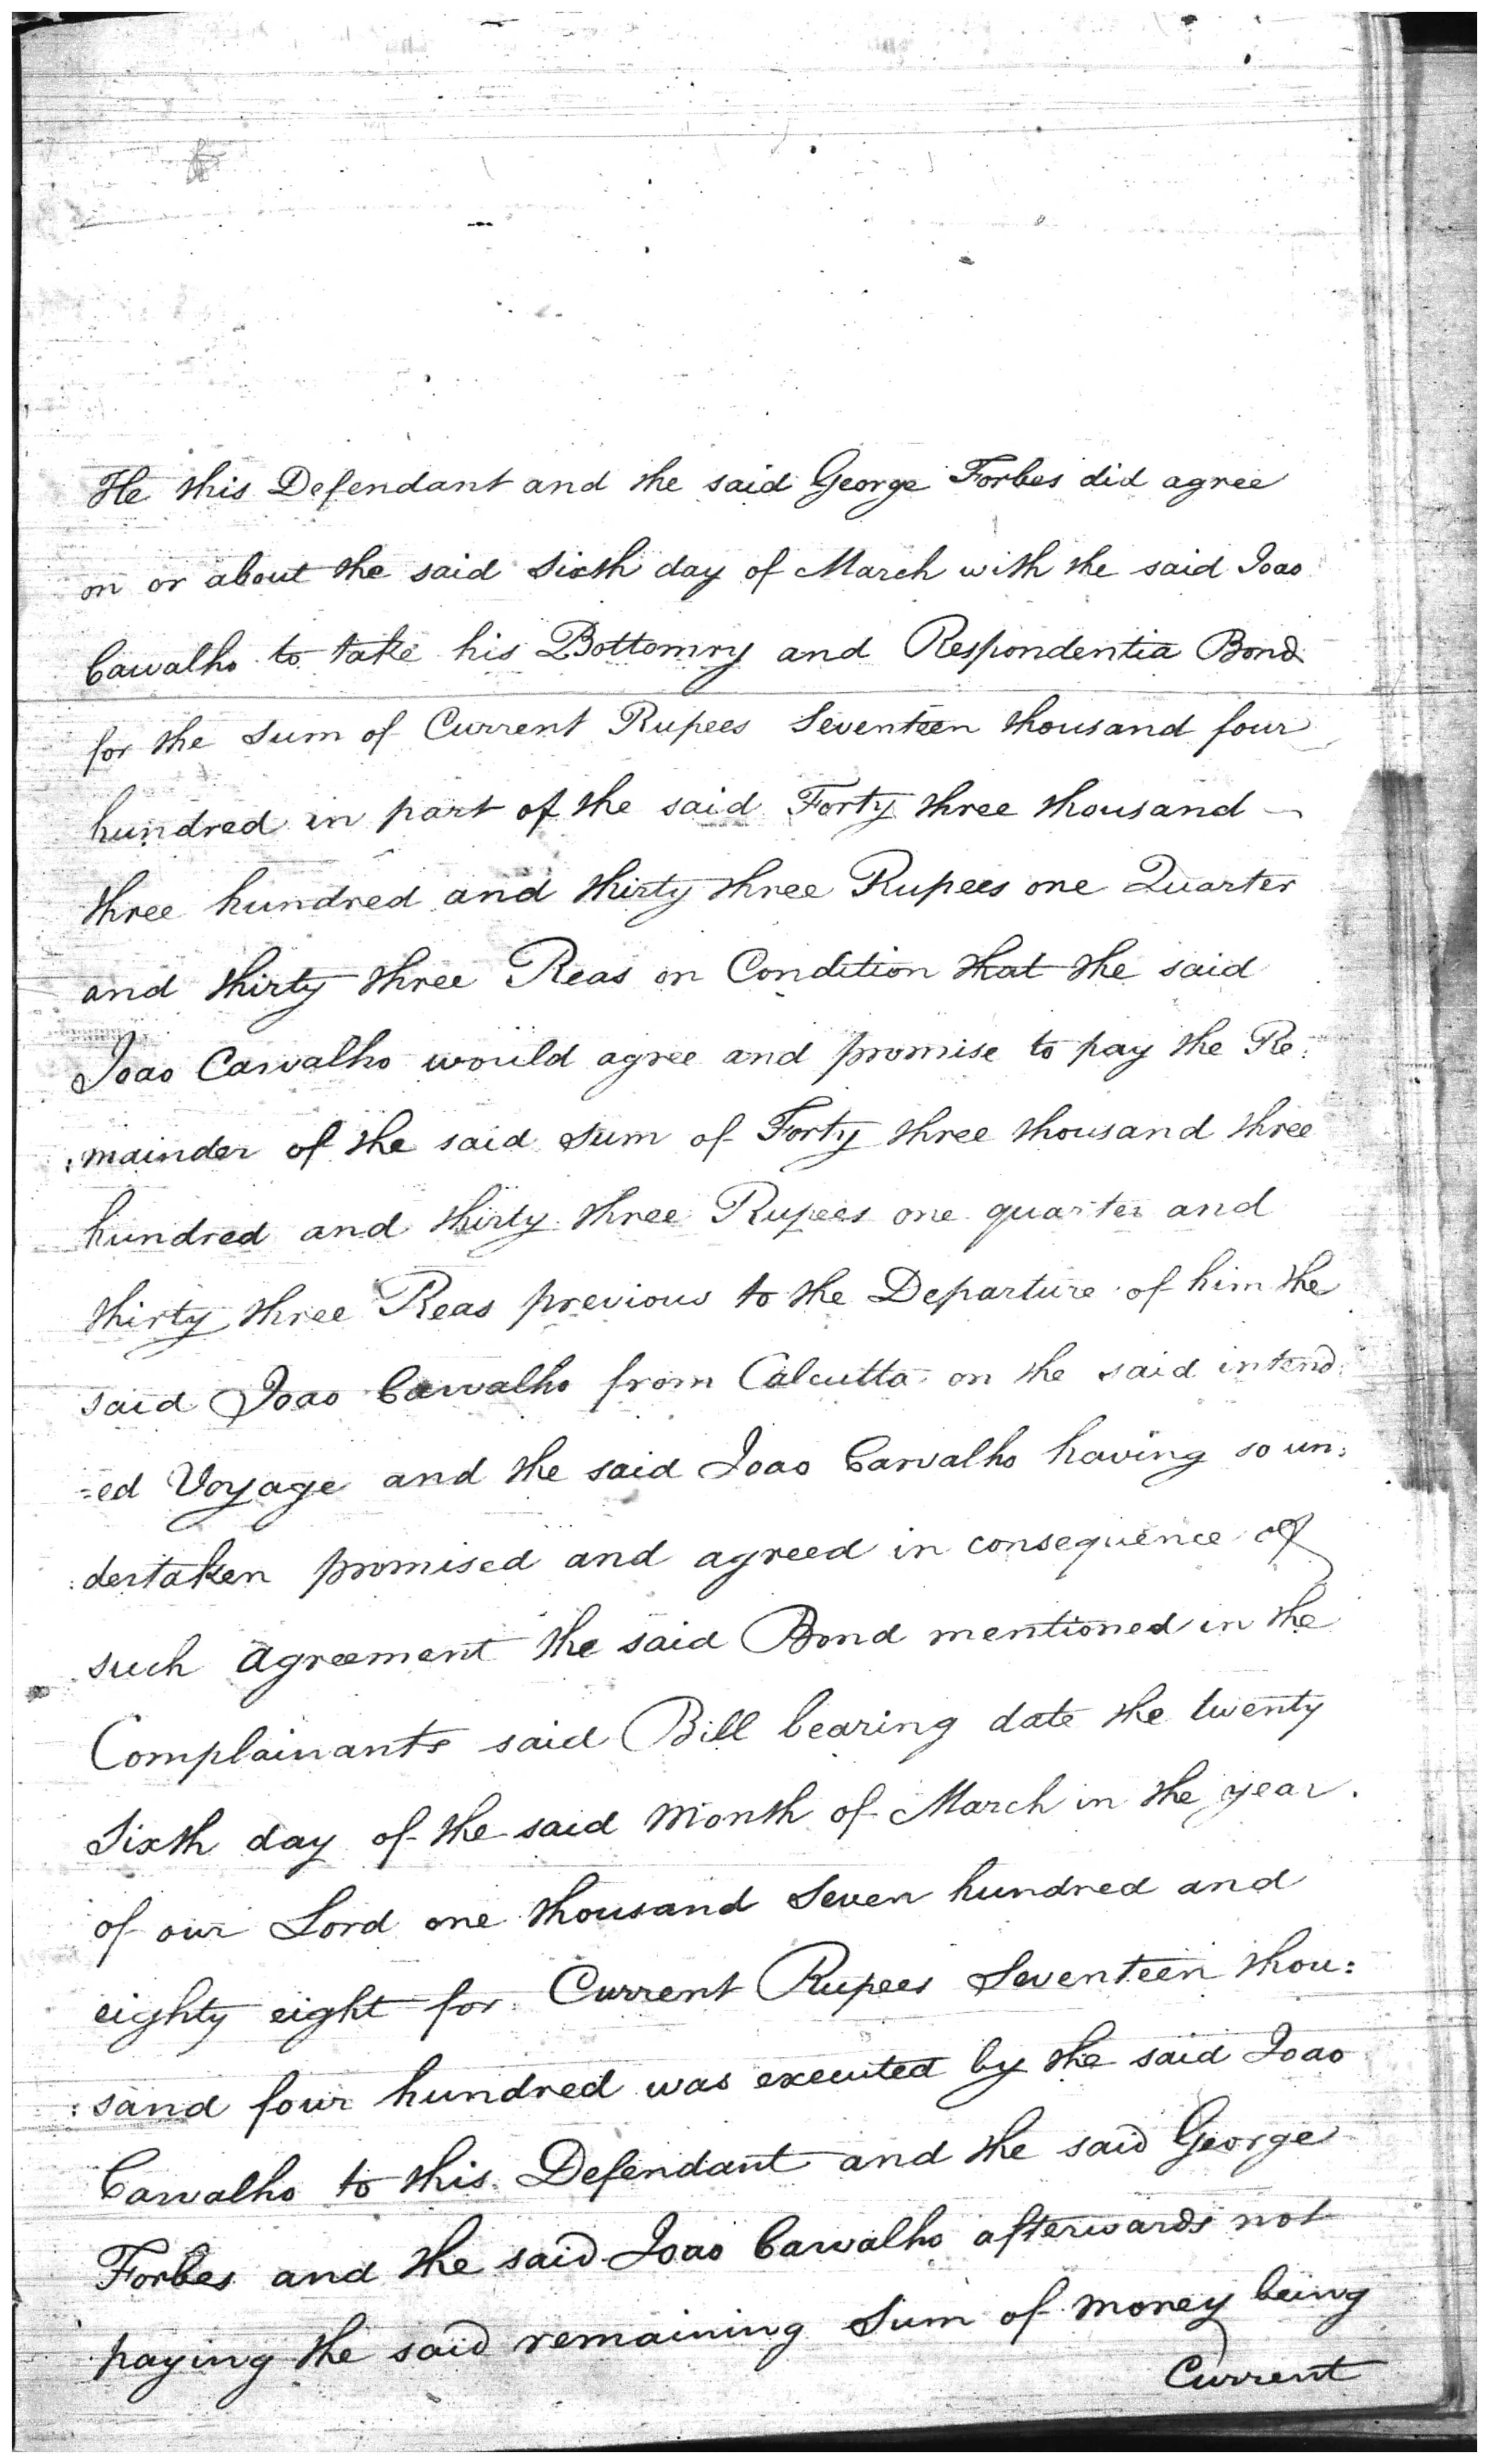 He this Defendant and the said George Forbes did agree
on or about the said Sixth day of March with the said Joao
Carvalho to take his Bottomry and Respondentia Bond
for the Sum of Current Rupees Seventeen thousand four
hundred in part of the said Forty three thousand
three hundred and thirty three Rupees one Quarter
and thirty three Reas on Condition that the said
Joao Carvalho would agree and promise to pay the Re:
:mainder of the said Sum of Forty three thousand three
hundred and thirty three Rupees one quarter and
thirty three Reas previous to the Departure of him the
said Joao Carvalho from Calcutta on the said intend:
=ed Voyage and the said Joao Carvalho having so un:
:dertaken promised and agreed in consequence of
such Agreement the said Bond mentioned in the
Complainants said Bill bearing date the twenty
Sixth day of the said Month of March in the year
of our Lord one thousand Seven hundred and
eighty eight for Current Rupees Seventeen thou:
:sand four hundred was executed by the said Joao
Carvalho to this Defendant and the said George
Forbes and the said Joao Carvalho afterwards not
paying the said remaining Sum of Money being
Current